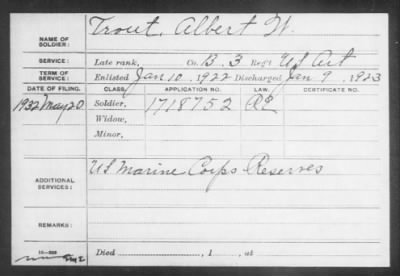 NAME OF SOLDIER: Trout, Albert W.
SERVICE: Late rank, Co. B. 3 Reg't US Art
TERM OF SERVICE: Enlisted Jan 10, 1922 Discharged Jan 9, 1923
DATE OF FILING. CLASS. APPLICATION NO. LAW. CERTIFICATE NO.
1932 May 20 Soldier. 1718752
Widow.
Minor.
ADDITIONAL SERVICES: US Marine Corps Reserves
REMARKS:
Died , 1 , at